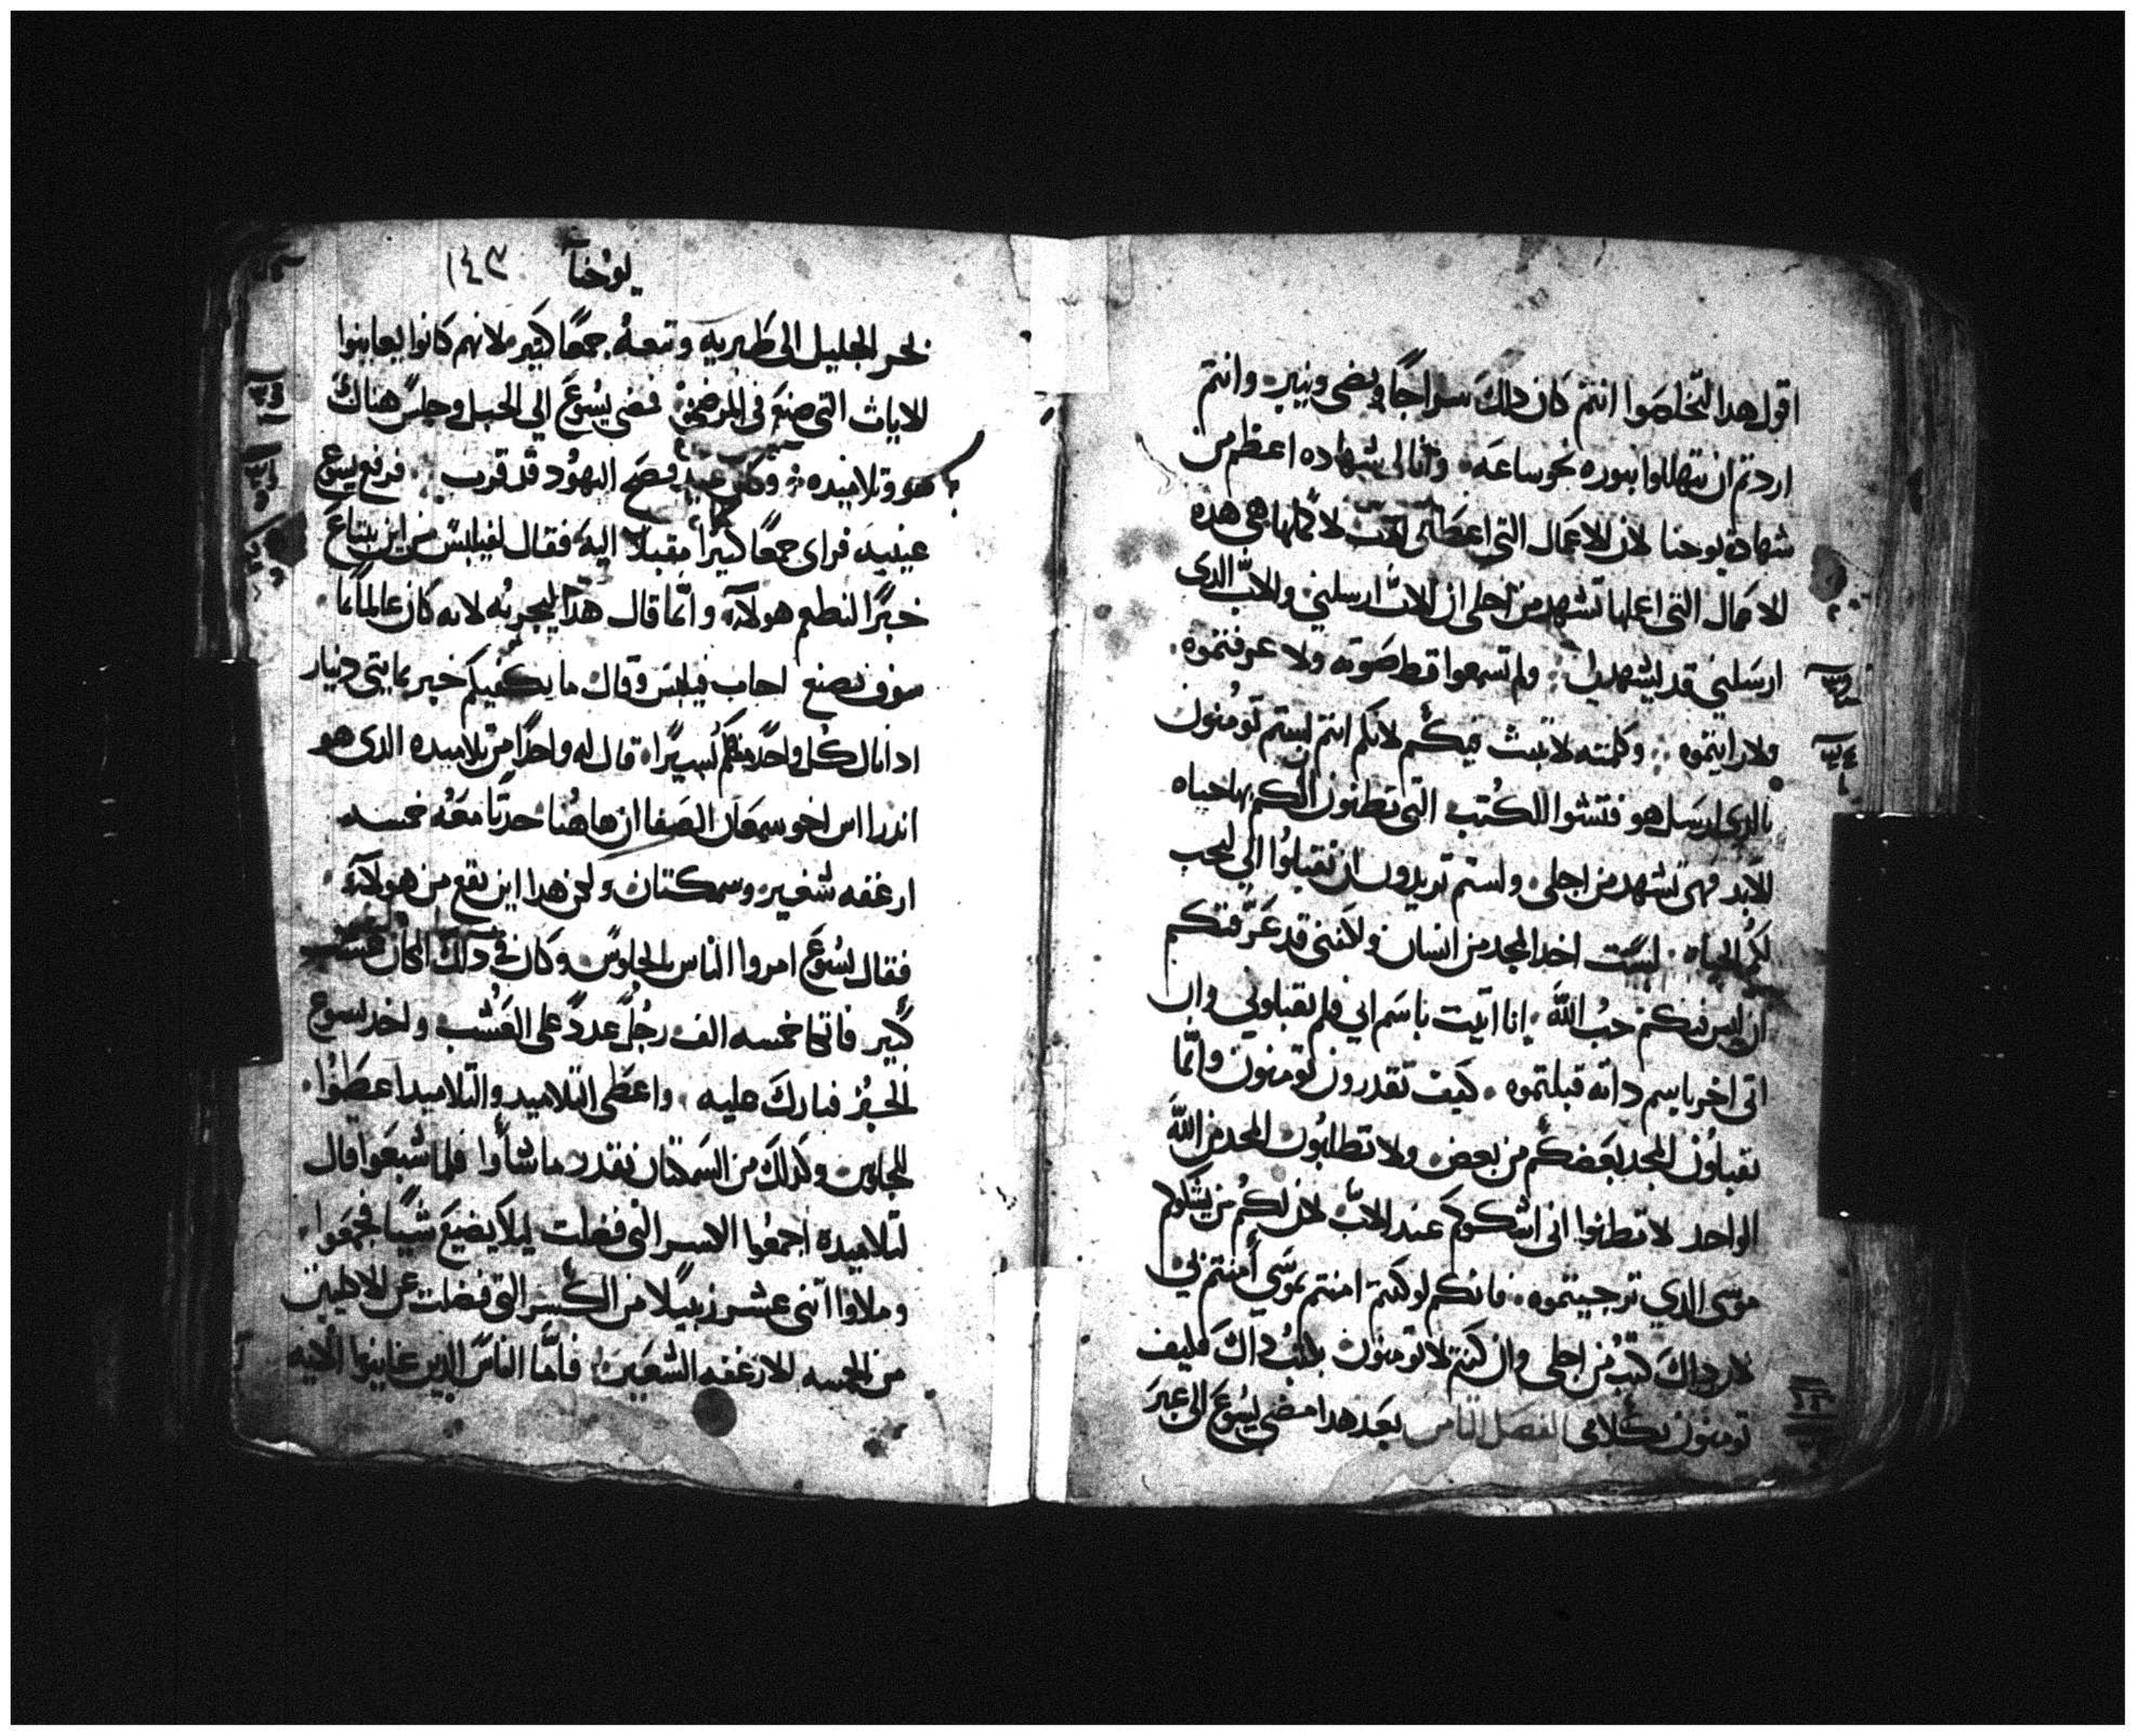 اقول هدا لتخلصوا انتم كان داك سراجا يضى وينير وانتم
اردتم ان تتهللوا بنوره نحو ساعه وانا لى شهاده اعظم من
شهادة يوحنا لان الاعمال التى اعطانى الاب لاكملها هى هده
الاعمال التى اعملها تشهد من اجلى ان الاب ارسلنى والاب الدى
ارسلنى قد يشهد لى ولم تسمعوا قط صوته ولا عرفتموه
ولا رايتموه وكلمته لا تبث فيكم لانكم انتم لستم تومنون
بالدى ارسل هو فتشوا الكتب التى تظنون ان لكم بها حياه
الابد فهى تشهد من اجلى ولستم تريدون ان تقبلوا الى لتجب
لكم الحياه لست اخد المجد من انسان ولكننى قد عرفتكم
ان ليس فيكم حب الله انا اتيت باسم ابى فلم تقبلونى وان
اتى اخر باسم داته قبلتموه كيف تقدرون تومنون وانما
تقبلون المجد بعضكم من بعض ولا تطلبون المجد من الله
الواحد لا تظنوا انى اشكوكم عند الاب لان لكم من يشكوكم
موسى الدي ترجيتموه فانكم لو كنتم امنتم بموسى امنتم بى
لان داك كتب من اجلى وان كنتم لا تومنون بكتب داك فكيف
تومنون بكلامى الفصل الثامن بعد هدا مضى يسوع الى عبر
يوحنا ١٤٣
بحر الجليل الى طبريه وتبعه جمعا كثير لانهم كانوا يعاينوا
الايات التى صنع فى المرضى فمضى يسوع الي الجبل وجلس هناك
هو وتلاميده وكان عيد فصح اليهود قد قرب فرفع يسوع
عينيه فراى جمعا كثيرا مقبلا اليه فقال لفيلبس من اين نبتاع
خبزا لنطعم هولاء وانما قال هدا ليجربه لانه كان عالما بما
سوف نصنع اجاب فيلبس وقال ما يكفيكم خبز بمايتى دينار
ادا نال كل واحد منكم يسيرا قال له واحدا من تلاميده الدى هو
اندراس اخو سمعان الصفا ان هاهنا حدتا معه خمسه
ارغفه شعير وسمكتان ولكن هدا اين يقع من هولاء
فقال يسوع امروا الناس بالجلوس وكان فى دلك المكان عشب
كبير فاتكا خمسه الف رجل عدد على العشب واخد يسوع
الخبز فبارك عليه واعطى التلاميد والتلاميد اعطوا
للجلوس وكدلك من السمكتان بقدر ما شاوا فلما شبعوا قال
لتلاميده اجمعوا الكسر التى فضلت ليلا يضيع شيا فجمعوا
وملاوا اثنى عشر زنبيلا من الكسر التى فضلت عن الاكلين
من الخمسه الارغفه الشعير فاما الناس الدين عاينوا الايه